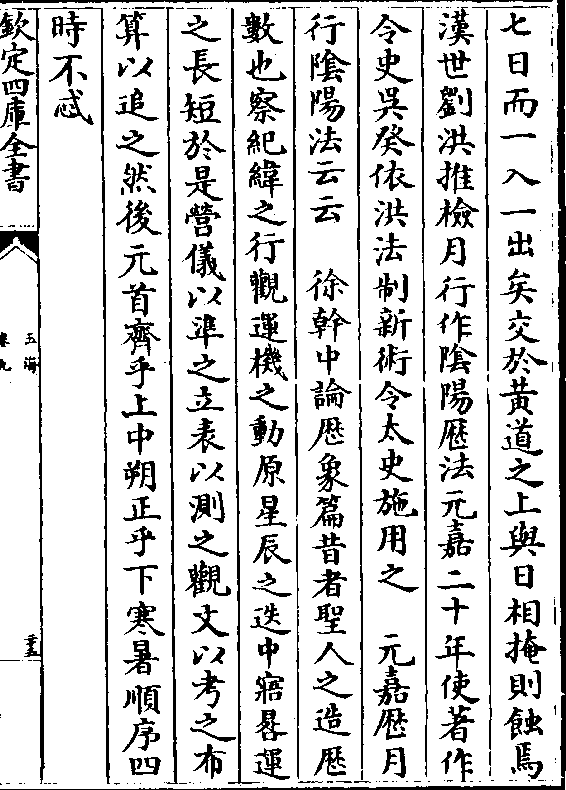 七日而一入一出矣交於黄道之上與日相掩則蝕焉
漢世劉洪推檢月行作隂陽歴法元嘉二十年使著作
令史吳癸依洪法制新術令太史施用之　元嘉歴月
行隂陽法云云　徐幹中論歴象篇昔者聖人之造歴
數也察紀緯之行觀運機之動原星辰之迭中寤晷運
之長短於是營儀以準之立表以測之觀文以考之布
算以追之然後元首齊乎上中朔正乎下寒暑順序四
時不忒
欽定四庫全書
玉海
卷九